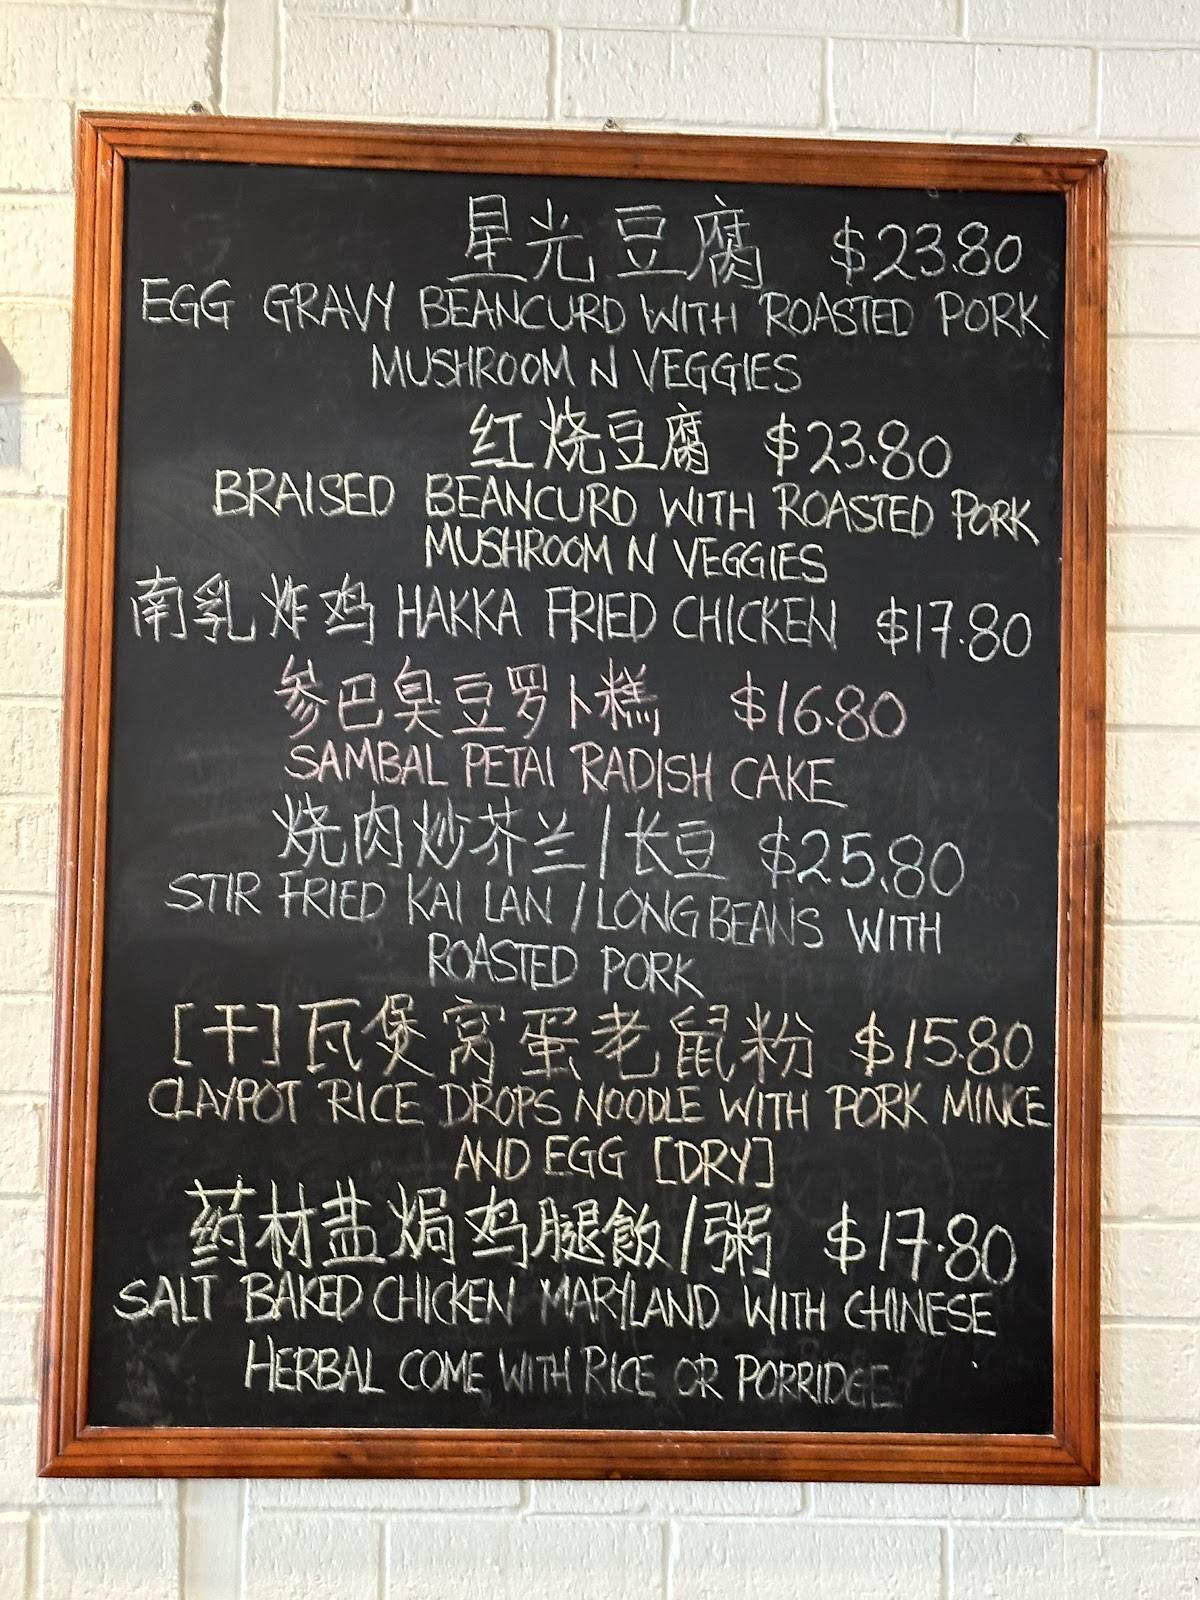 星光豆腐 $23.80
EGG GRAVY BEANCURD WITH ROASTED PORK
MUSHROOM N VEGGIES
红烧豆腐 $23.80
BRAISED BEANCURD WITH ROASTED PORK
MUSHROOM N VEGGIES
南乳炸鸡 HAKKA FRIED CHICKEN $17.80
参巴臭豆罗卜糕 $16.80
SAMBAL PETAI RADISH CAKE
烧肉炒芥兰/长豆 $25.80
STIR FRIED KAI LAN / LONG BEANS WITH
ROASTED PORK
[干]瓦煲窝蛋老鼠粉 $15.80
CLAYPOT RICE DROPS NOODLE WITH PORK MINCE
AND EGG [DRY]
药材盐焗鸡腿飯/粥 $17.80
SALT BAKED CHICKEN MARYLAND WITH CHINESE
HERBAL COME WITH RICE OR PORRIDGE